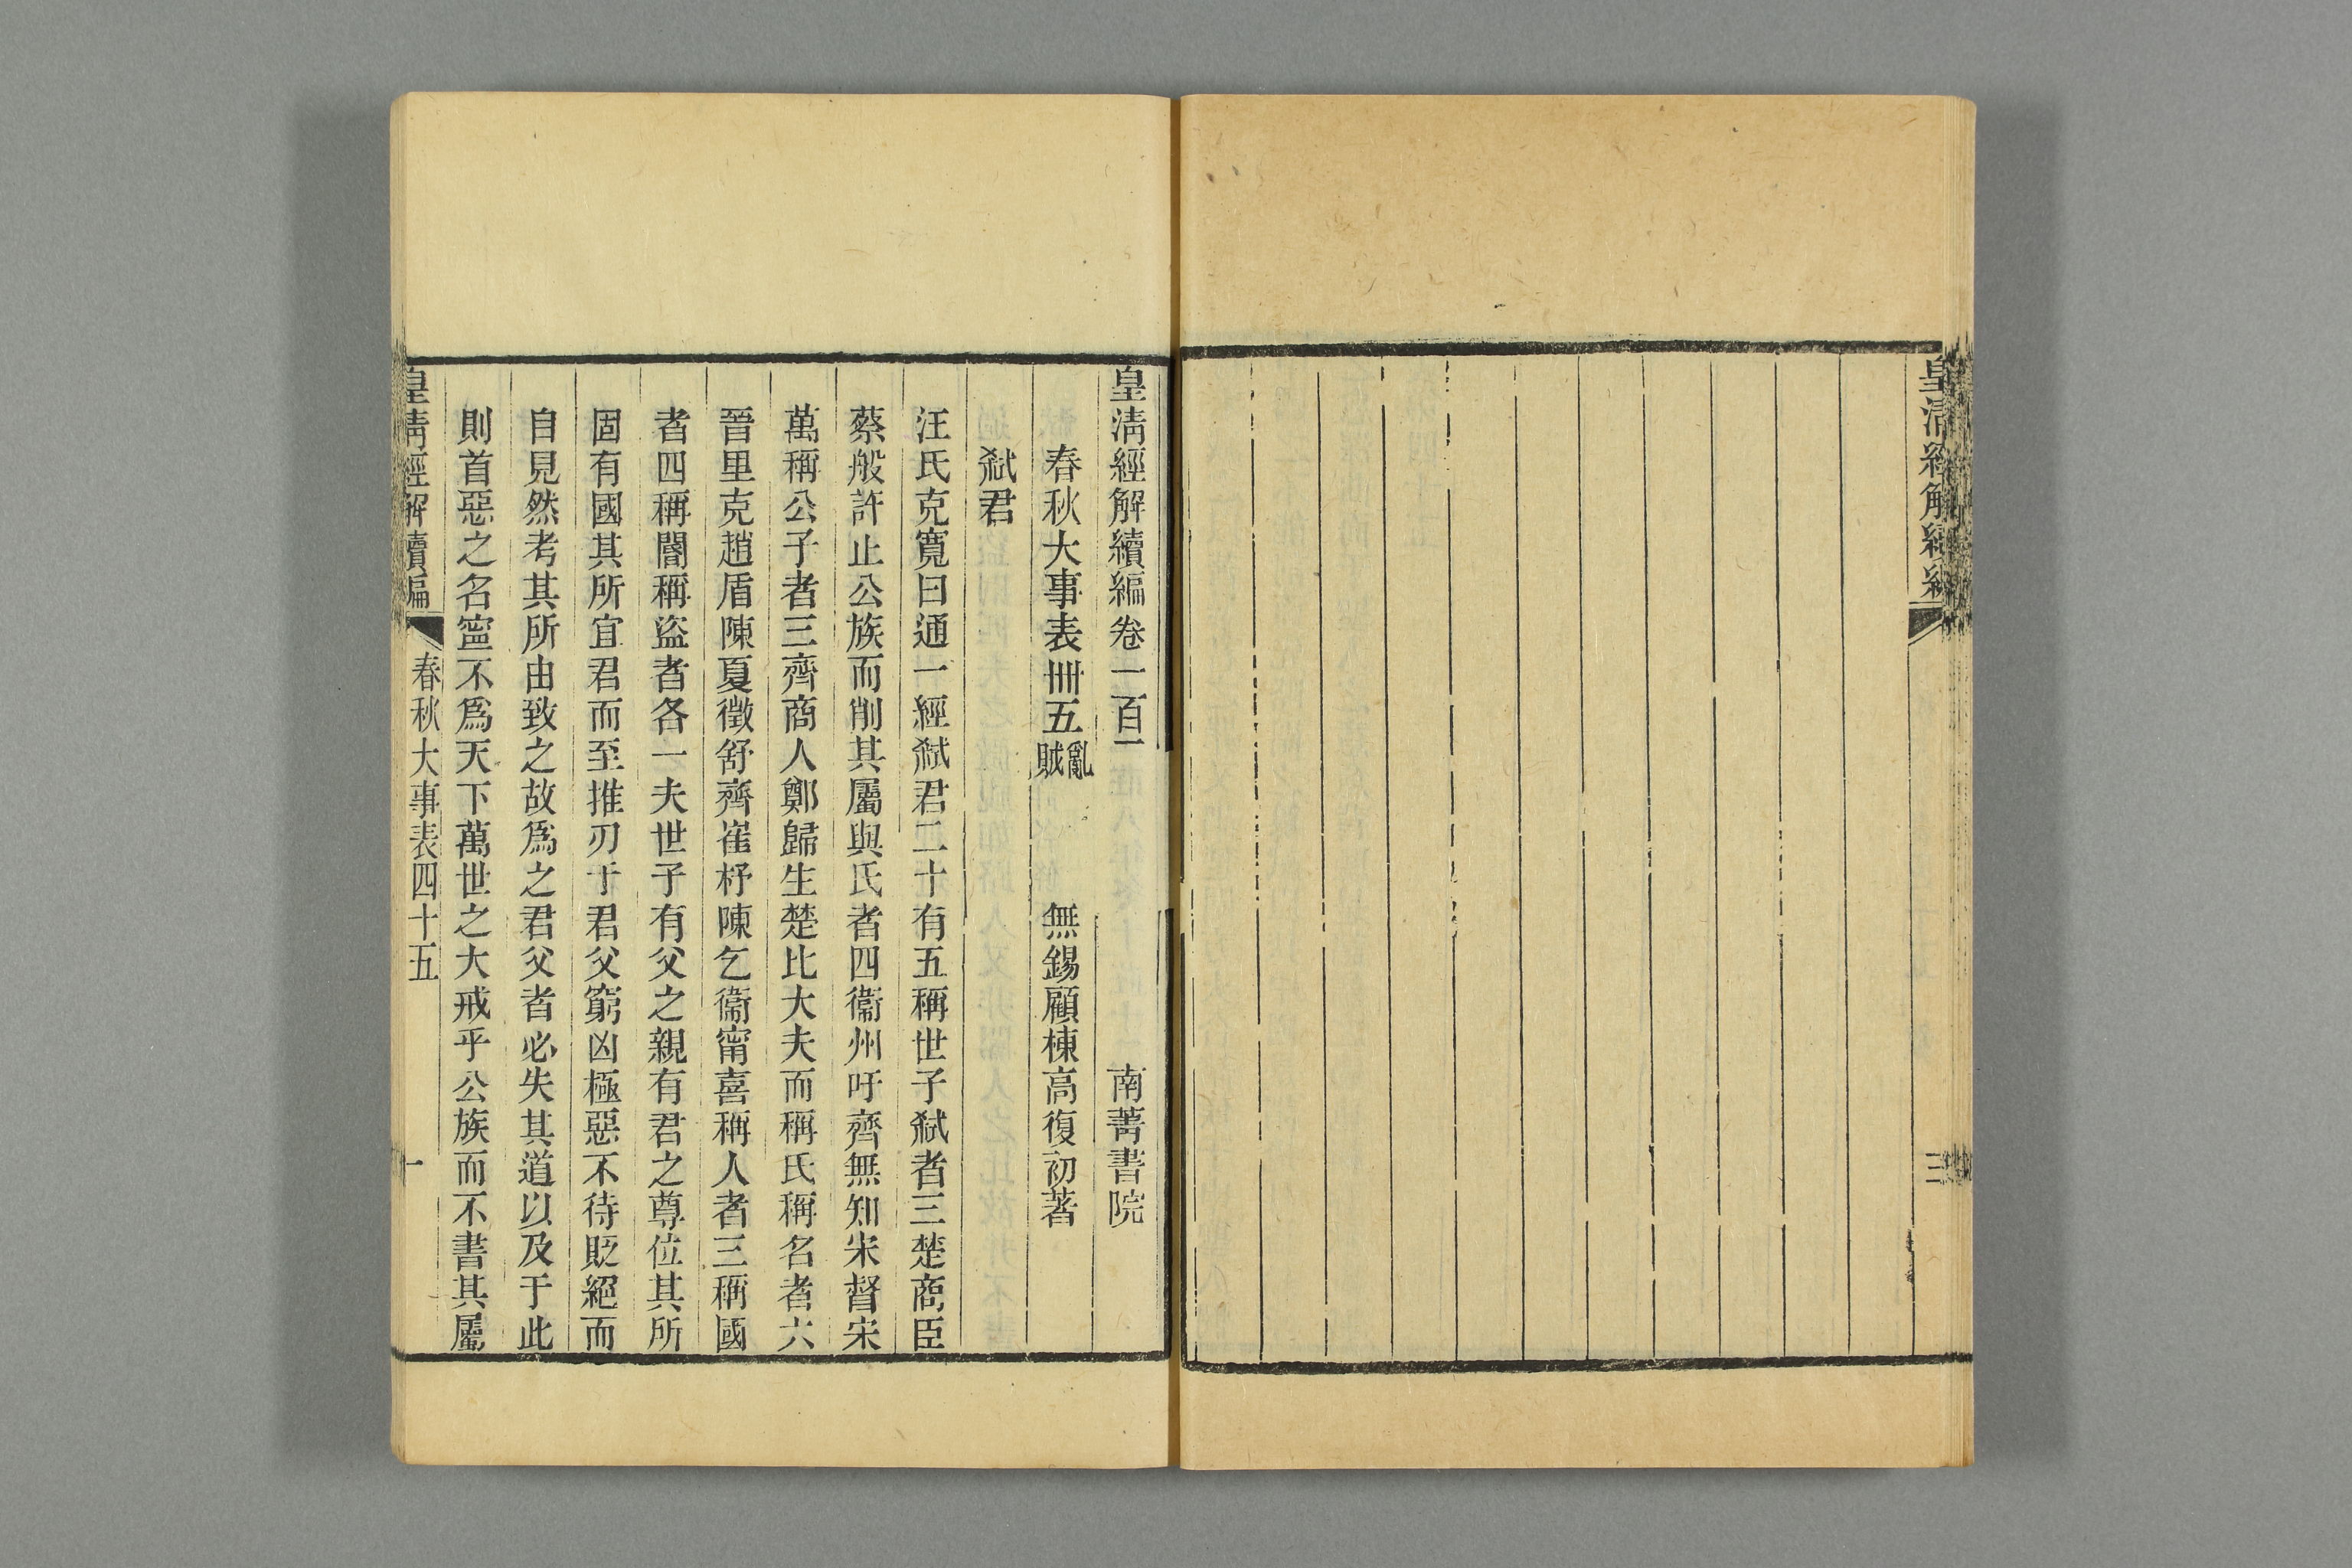 皇清經解續編
三
皇清經解續編卷一百一 南菁書院
春秋大事表卌五亂賊 無錫顧棟高復初著
弑君
汪氏克寬曰通一經弑君二十有五稱世子弑者三楚商臣
蔡般許止公族而削其屬與氏者四衞州吁齊無知宋督宋
萬稱公子者三齊商人鄭歸生楚比大夫而稱氏稱名者六
晉里克趙盾陳夏徵舒齊崔杼陳乞衞甯喜稱人者三稱國
者四稱閽稱盜者各一夫世子有父之親有君之尊位其所
固有國其所宜君而至推刃于君父窮凶極惡不待貶絕而
自見然考其所由致之故爲之君父者必失其道以及于此
則首惡之名寍不爲天下萬世之大戒乎公族而不書其屬
皇清經解續編 春秋大事表四十五 一